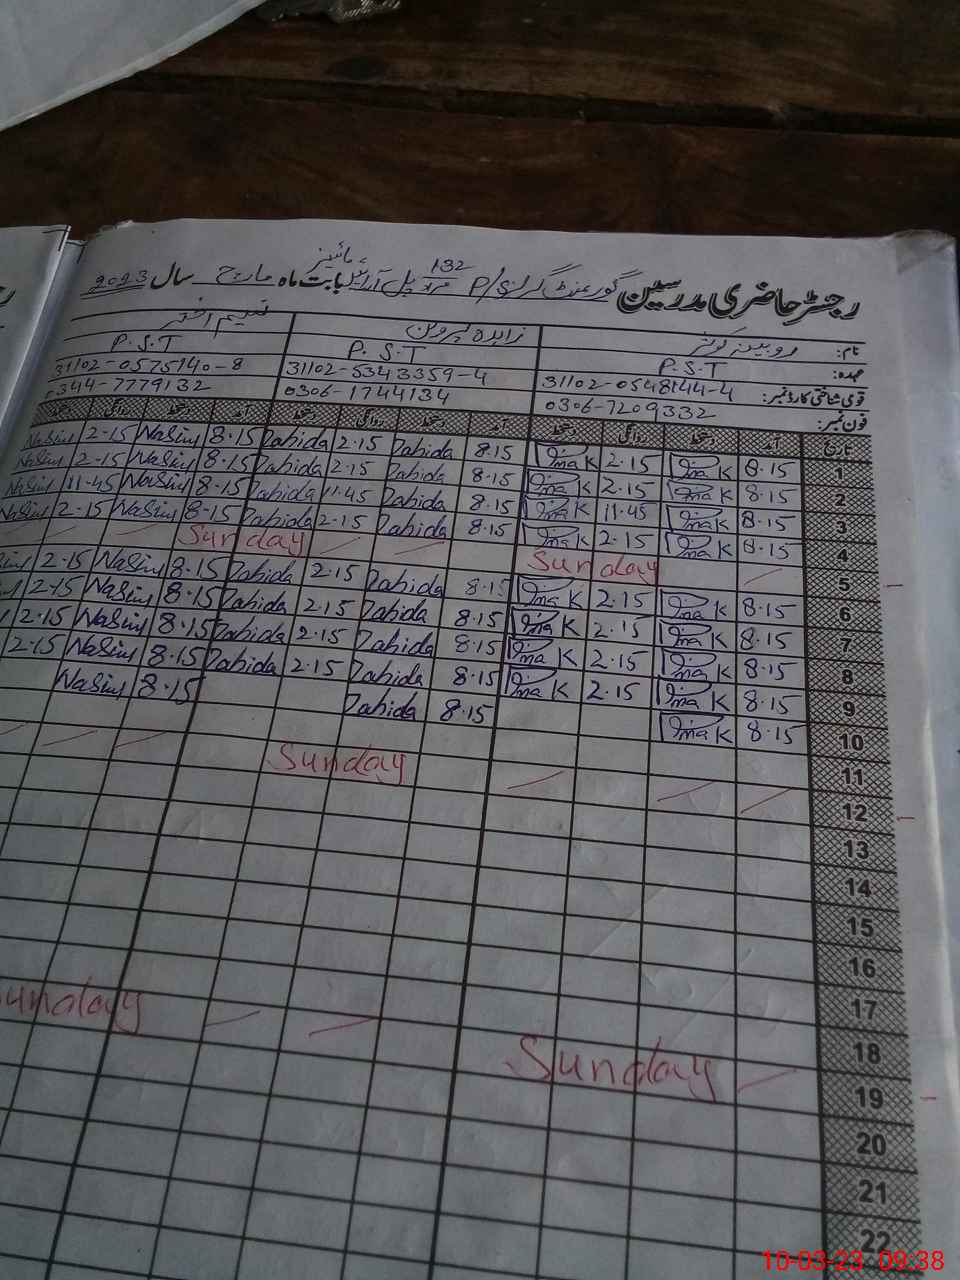 رجسٹر حاضری مدرسین گورنمنٹ گرلز P/ 132 مراد پل آرائیں مائینر بابت ماہ مارچ سال 2023
نام: روبینہ کوثر زاہدہ پروین نسیم اختر
عہدہ: P.S.T P.S.T P.S.T
قومی شناختی کارڈ نمبر: 31102-0548144-4 31102-5343359-4 31102-0575140-8
فون نمبر: 0306-7209332 0306-1744134 0344-7779132
تاریخ آمد دستخط روانگی دستخط آمد دستخط روانگی دستخط آمد دستخط روانگی دستخط
1 8.15 2.15 8.15 Zahida 2.15 Zahida 8.15 Nasim 2-15 Nasim
2 8.15 2.15 8.15 Zahida 2.15 Zahida 8.15 Nasim 2-15 Nasim
3 8.15 11.45 8.15 Zahida 11.45 Zahida 8.15 Nasim 11-45 Nasim
4 8.15 2.15 8.15 Zahida 2.15 Zahida 8.15 Nasim 2-15 Nasim
5 Sunday Sunday
6 8.15 2.15 8.15 Zahida 2.15 Zahida 8.15 Nasim 2.15
7 8.15 2.15 8.15 Zahida 2.15 Zahida 8.15 Nasim 2.15
8 8.15 2.15 8.15 Zahida 2.15 Zahida 8.15 Nasim 2.15
9 8.15 2.15 8.15 Zahida 2.15 Zahida 8.15 Nasim 2-15
10 8.15 8.15 Zahida 8.15 Nasim
11
12 Sunday
13
14
15
16
17
18
19 Sunday Sunday
20
21
22
10-03-23 09:38